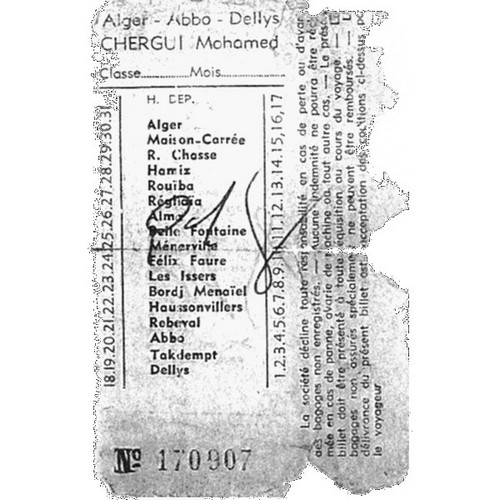 Alger - Abbo - Dellys
CHERGUI Mohamed
Classe.............. Mois..............
H. DEP.
Alger
Maison-Carrée
R. Chasse
Hamiz
Rouïba
Réghaïa
Alma
Belle Fontaine
Ménerville
Félix Faure
Les Issers
Bordj Menaïel
Haussonvillers
Rebeval
Abbo
Takdempt
Dellys
18.19.20.21.22.23.24.25.26.27.28.29.30.31
1.2.3.4.5.6.7.8.9.10.11.12.13.14.15.16.17
La société décline toute responsabilité en cas de perte ou d'avar
des bagages non enregistrés. — Aucune indemnité ne pourra être ré
mée en cas de panne, avarie de machine où tout autre cas. — Le prése
billet doit être présenté à toute réquisition au cours du voyage. — L
bagages non assures spécialeme ne peuvent être remboursés.
délivrance du présent billet est acceptation des conditions ci-dessus po
le voyageur
Nº 170907